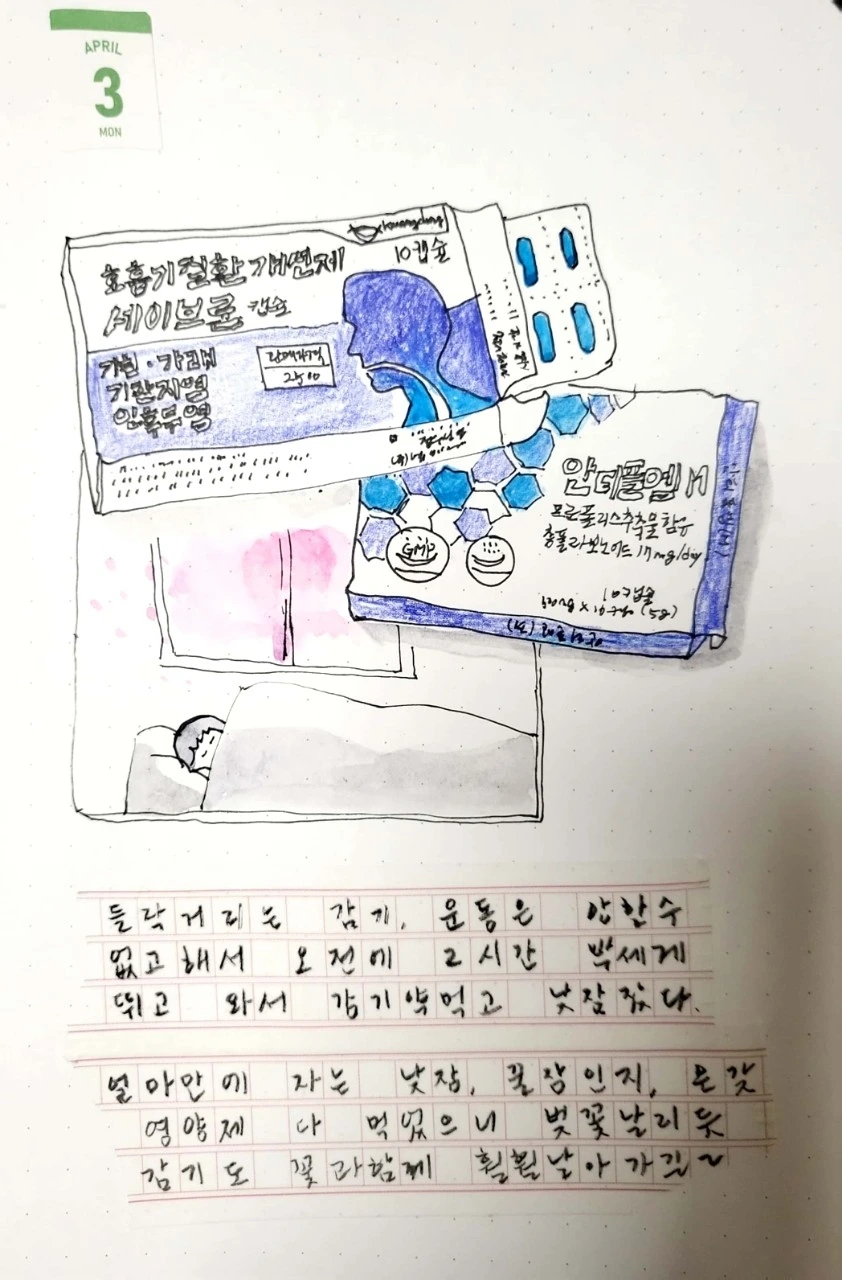 APRIL
3
MON
10캡슐
호흡기질환 개선제
세이브론 캡슐
기침·가래
기관지염
인후두염
안티플엘 M
프로폴리스추출물 함유
총플라보노이드 17mg/day
10캡슐
GMP
들락거리는 감기, 운동은 안할수
없고 해서 오전에 2시간 빡세게
뛰고 와서 감기약먹고 낮잠 잤다.
얼마만에 자는 낮잠, 꿀잠인지, 온갖
영양제 다 먹었으니 벚꽃날리듯
감기도 꽃과함께 훨훨날아가길~